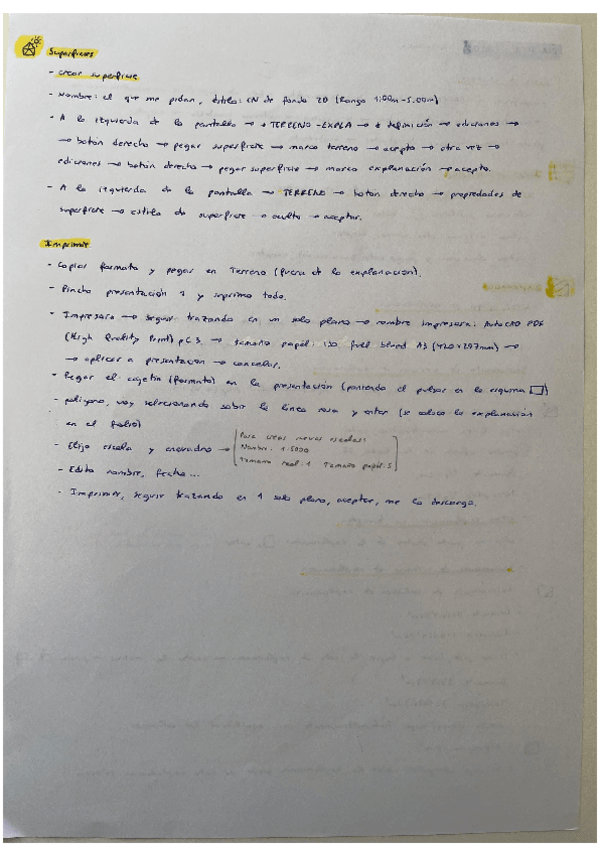 Superficies
- crear superficie
- Nombre: el que me pidan, estilo: CN de fondo 2D (Rango 1:00m-5.00m)
- A la izquierda de la pantalla → + TERRENO-EXPLA → + definición → ediciones →
→ botón derecho → pegar superficie → marco terreno → acepto → otra vez →
ediciones → botón derecho → pegar superficie → marco explanación → acepto.
- A la izquierda de la pantalla → TERRENO → botón derecho → propiedades de
superficie → estilo de superficie → oculto → aceptar.
Imprimir
- Copiar formato y pegar en Terreno (fuera de la explanación).
- Pincho presentación 1 y suprimo todo.
- Impresora → seguir trazando en un solo plano → nombre impresora: AutoCAD PDF
(High Quality Print) pc3 → tamaño papel: iso full bleed A3 (420x297mm) →
→ aplicar a presentación → cancelar.
- Pegar el cajetín (formato) en la presentación (poniendo el pulsar en la esquina)
- polígono, voy seleccionando sobre la línea rosa y enter (se coloca la explanación
en el folio)
- Elijo escala y encuadro → Para crear nuevas escalas:
Nombre: 1:5000
Tamaño real: 1 Tamaño papel: 5
- Edito nombre, fecha...
- Imprimir, seguir trazando en 1 solo plano, aceptar, me lo descarga.